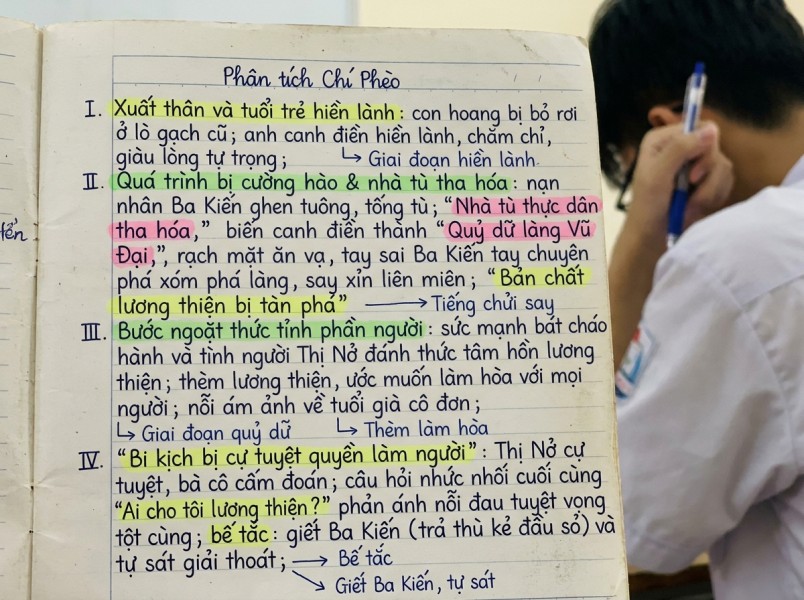 Phân tích Chí Phèo
I. Xuất thân và tuổi trẻ hiền lành: con hoang bị bỏ rơi
ở lò gạch cũ; anh canh điền hiền lành, chăm chỉ,
giàu lòng tự trọng; ↳ Giai đoạn hiền lành.
II. Quá trình bị cường hào & nhà tù tha hóa: nạn
nhân Ba Kiến ghen tuông, tống tù; "Nhà tù thực dân
tha hóa," biến canh điền thành "Quỷ dữ làng Vũ
Đại,", rạch mặt ăn vạ, tay sai Ba Kiến tay chuyên
phá xóm phá làng, say xỉn liên miên; "Bản chất
lương thiện bị tàn phá" → Tiếng chửi say
III. Bước ngoặt thức tỉnh phần người: sức mạnh bát cháo
hành và tình người Thị Nở đánh thức tâm hồn lương
thiện; thèm lương thiện, ước muốn làm hòa với mọi
người; nỗi ám ảnh về tuổi già cô đơn;
↳ Giai đoạn quỷ dữ ↳ Thèm làm hòa
IV. "Bi kịch bị cự tuyệt quyền làm người": Thị Nở cự
tuyệt, bà cô cấm đoán; câu hỏi nhức nhối cuối cùng
"Ai cho tôi lương thiện?" phản ánh nỗi đau tuyệt vọng
tột cùng; bế tắc: giết Ba Kiến (trả thù kẻ đầu sỏ) và
tự sát giải thoát; → Bế tắc
→ Giết Ba Kiến, tự sát